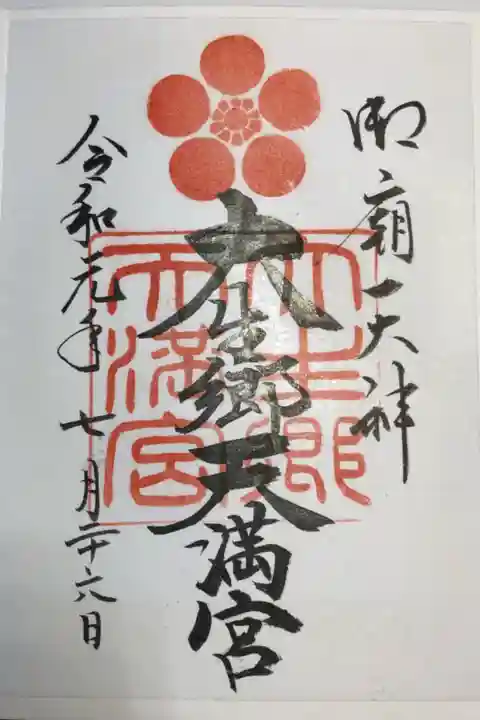 御廟天神
大生郷天満宮
大生郷
天満宮
令和元年七月二十六日